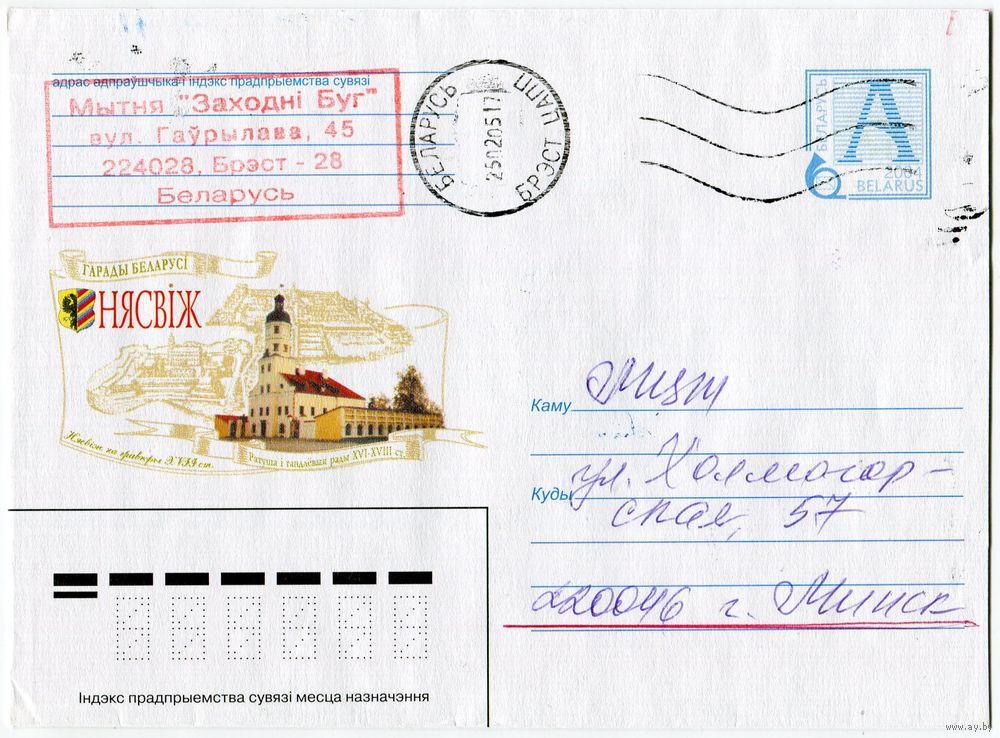 адрас адпраўшчыка і індэкс прадпрыемства сувязі
Мытня "Заходні Буг"
вул. Гаўрылава, 45
224028, Брэст - 28
Беларусь
БЕЛАРУСЬ
25020517
БРЭСТ ЦАПП
БЕЛАРУСЬ
A
2004
BELARUS
ГАРАДЫ БЕЛАРУСІ
НЯСВІЖ
Нясвіж на гравюры XVII ст.
Ратуша і гандлёвыя рады XVI-XVIII ст.
Каму
Куды ул. Холмогор-
ская, 57
220046 г. Минск
Індэкс прадпрыемства сувязі месца назначэння
www.ay.by